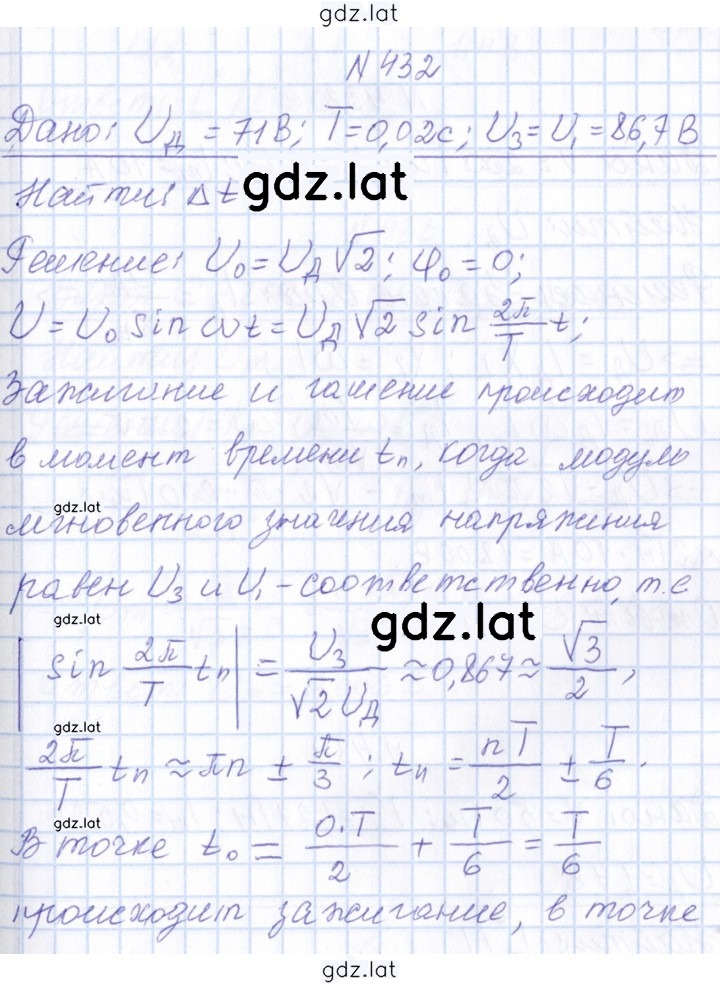 gdz.lat
N 432
Дано: U_Д = 71 В; T = 0,02 с; U_З = U_1 = 86,7 В
Найти: Δt
gdz.lat
Решение: U_0 = U_Д √2; φ_0 = 0;
U = U_0 sin ωt = U_Д √2 sin 2π/T t;
Зажигание и гашение происходит
в момент времени t_n, когда модуль
gdz.lat
мгновенного значения напряжения
равен U_З и U_1 - соответственно, т.е
gdz.lat
gdz.lat
|sin 2π/T t_n| = U_З/(√2 U_Д) ≈ 0,867 ≈ √3/2,
gdz.lat
2π/T t_n ≈ πn ± π/3; t_n = nT/2 ± T/6.
gdz.lat
В точке t_0 = 0·T/2 + T/6 = T/6
происходит зажигание, в точке
gdz.lat